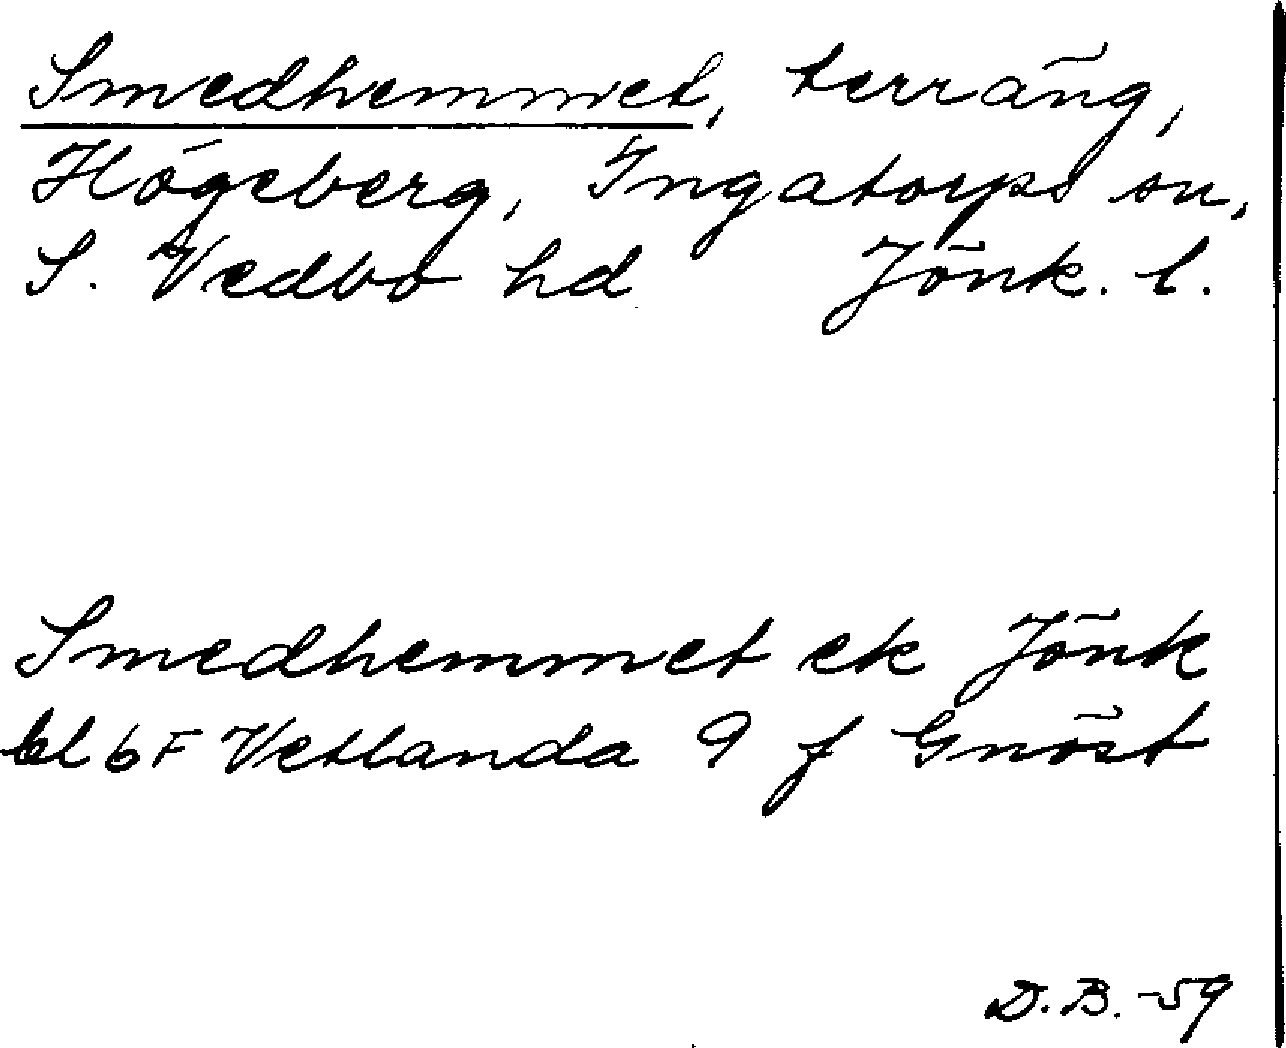 Smedhemmet, terräng,
Högeberg, Ingatorps sn,
S. Vedbo hd Jönk. l.
Smedhemmet ek Jönk
bl 6F Vetlanda 9 f Gnöst
D.B. -59